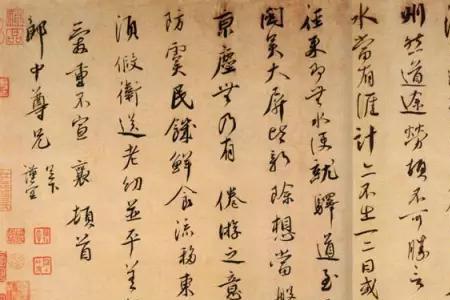 州然道遠勞頓不可勝言
水當有涯計亦不生一二日或
任來即無水便就驛道至
大屏皆新除想當
京塵無乃有倦游之意
防寔民饑鮮食流移東
須假衛送老幼並平善
重不宣襄頓首
郎中尊兄
謹空